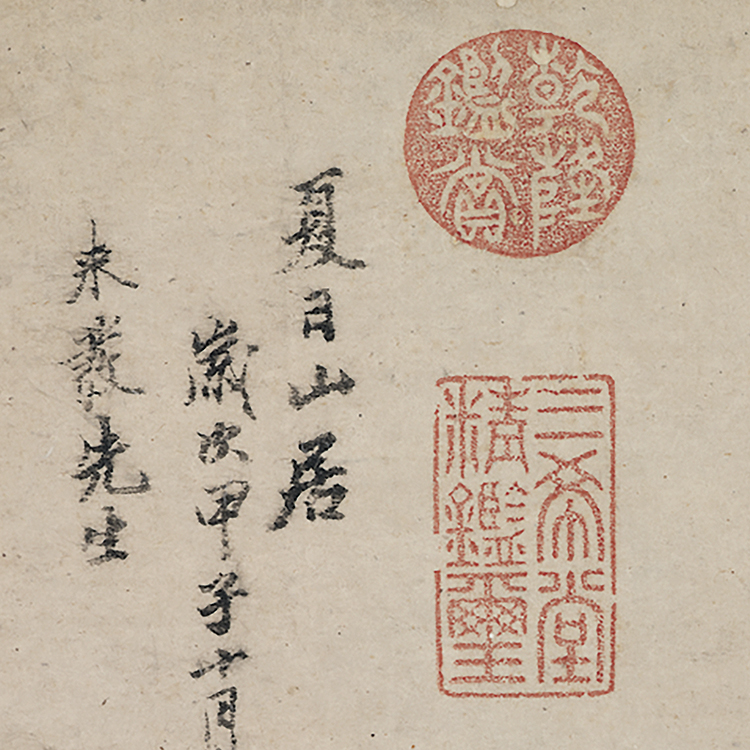 乾隆
鑑賞
三希堂
精鑑璽
夏日山居
歲次甲子十月
先生